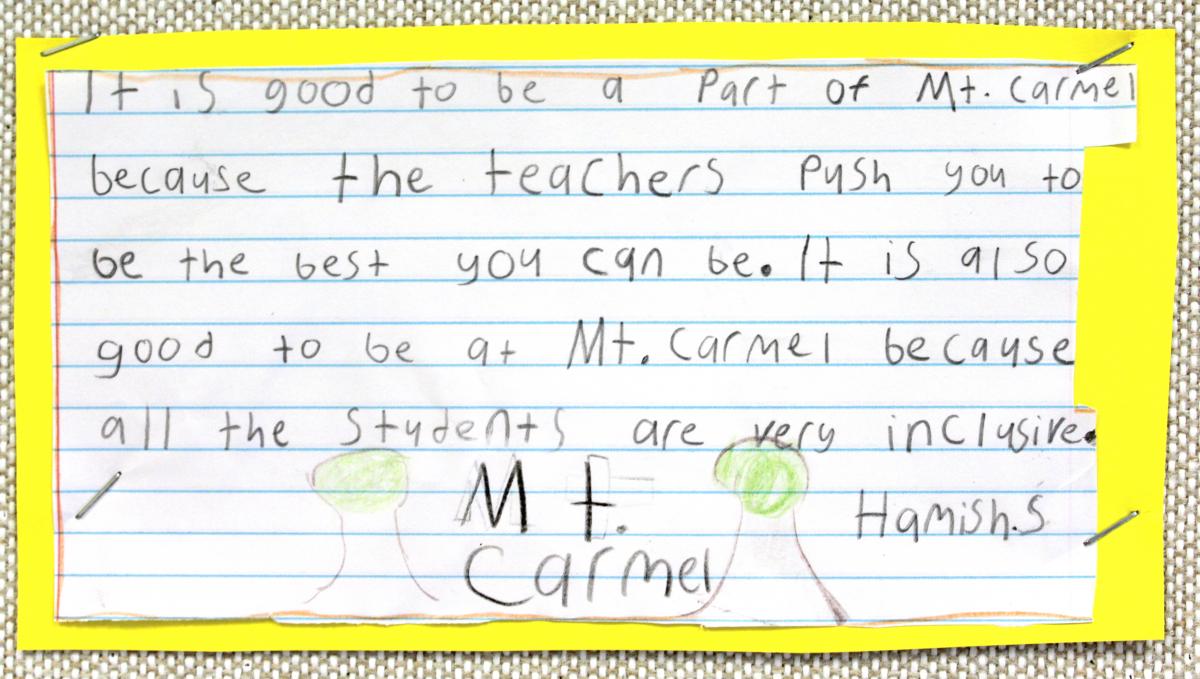 It is good to be a Part of Mt. Carmel
because the teachers Push you to
be the best you can be. It is also
good to be at Mt. Carmel because
all the Students are very inclusive.
Mt.
Carmel
Hamish.S